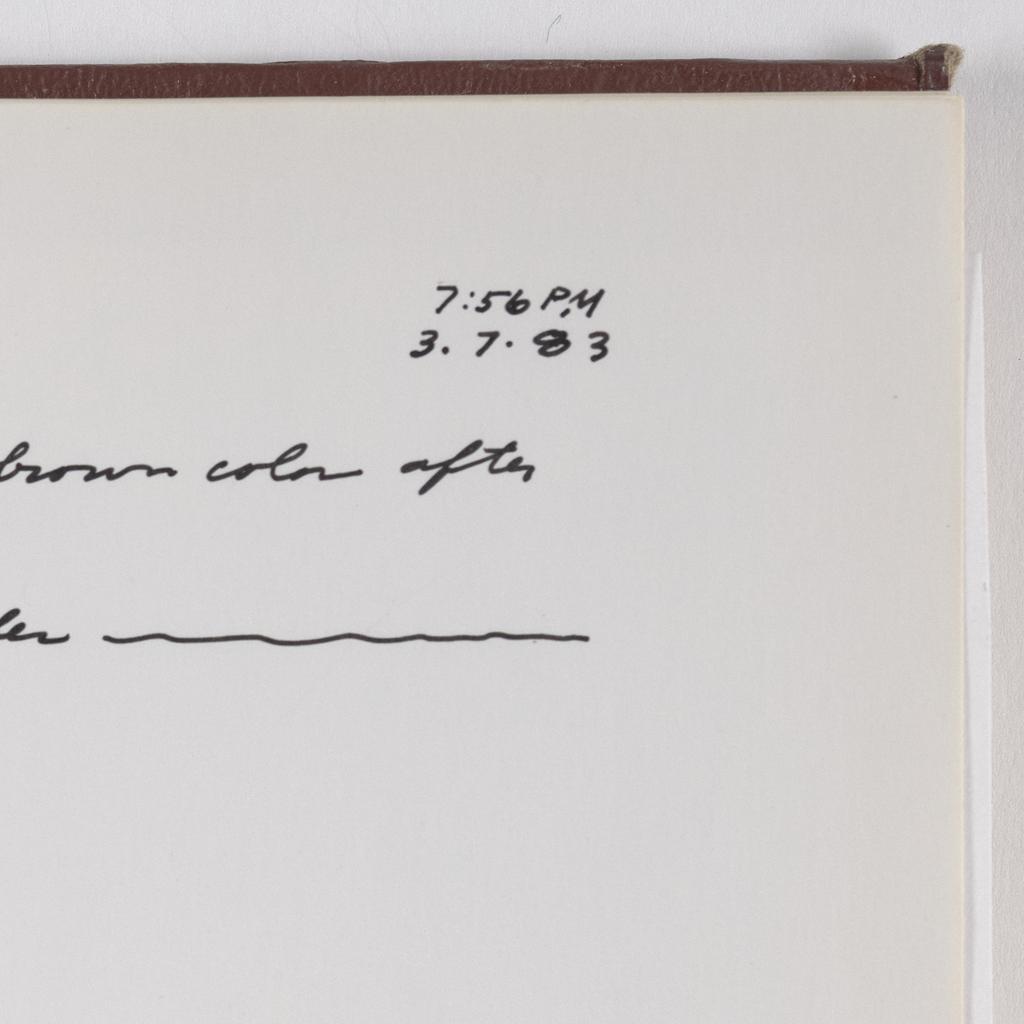 7:56 PM
3. 7. 83
brown color after